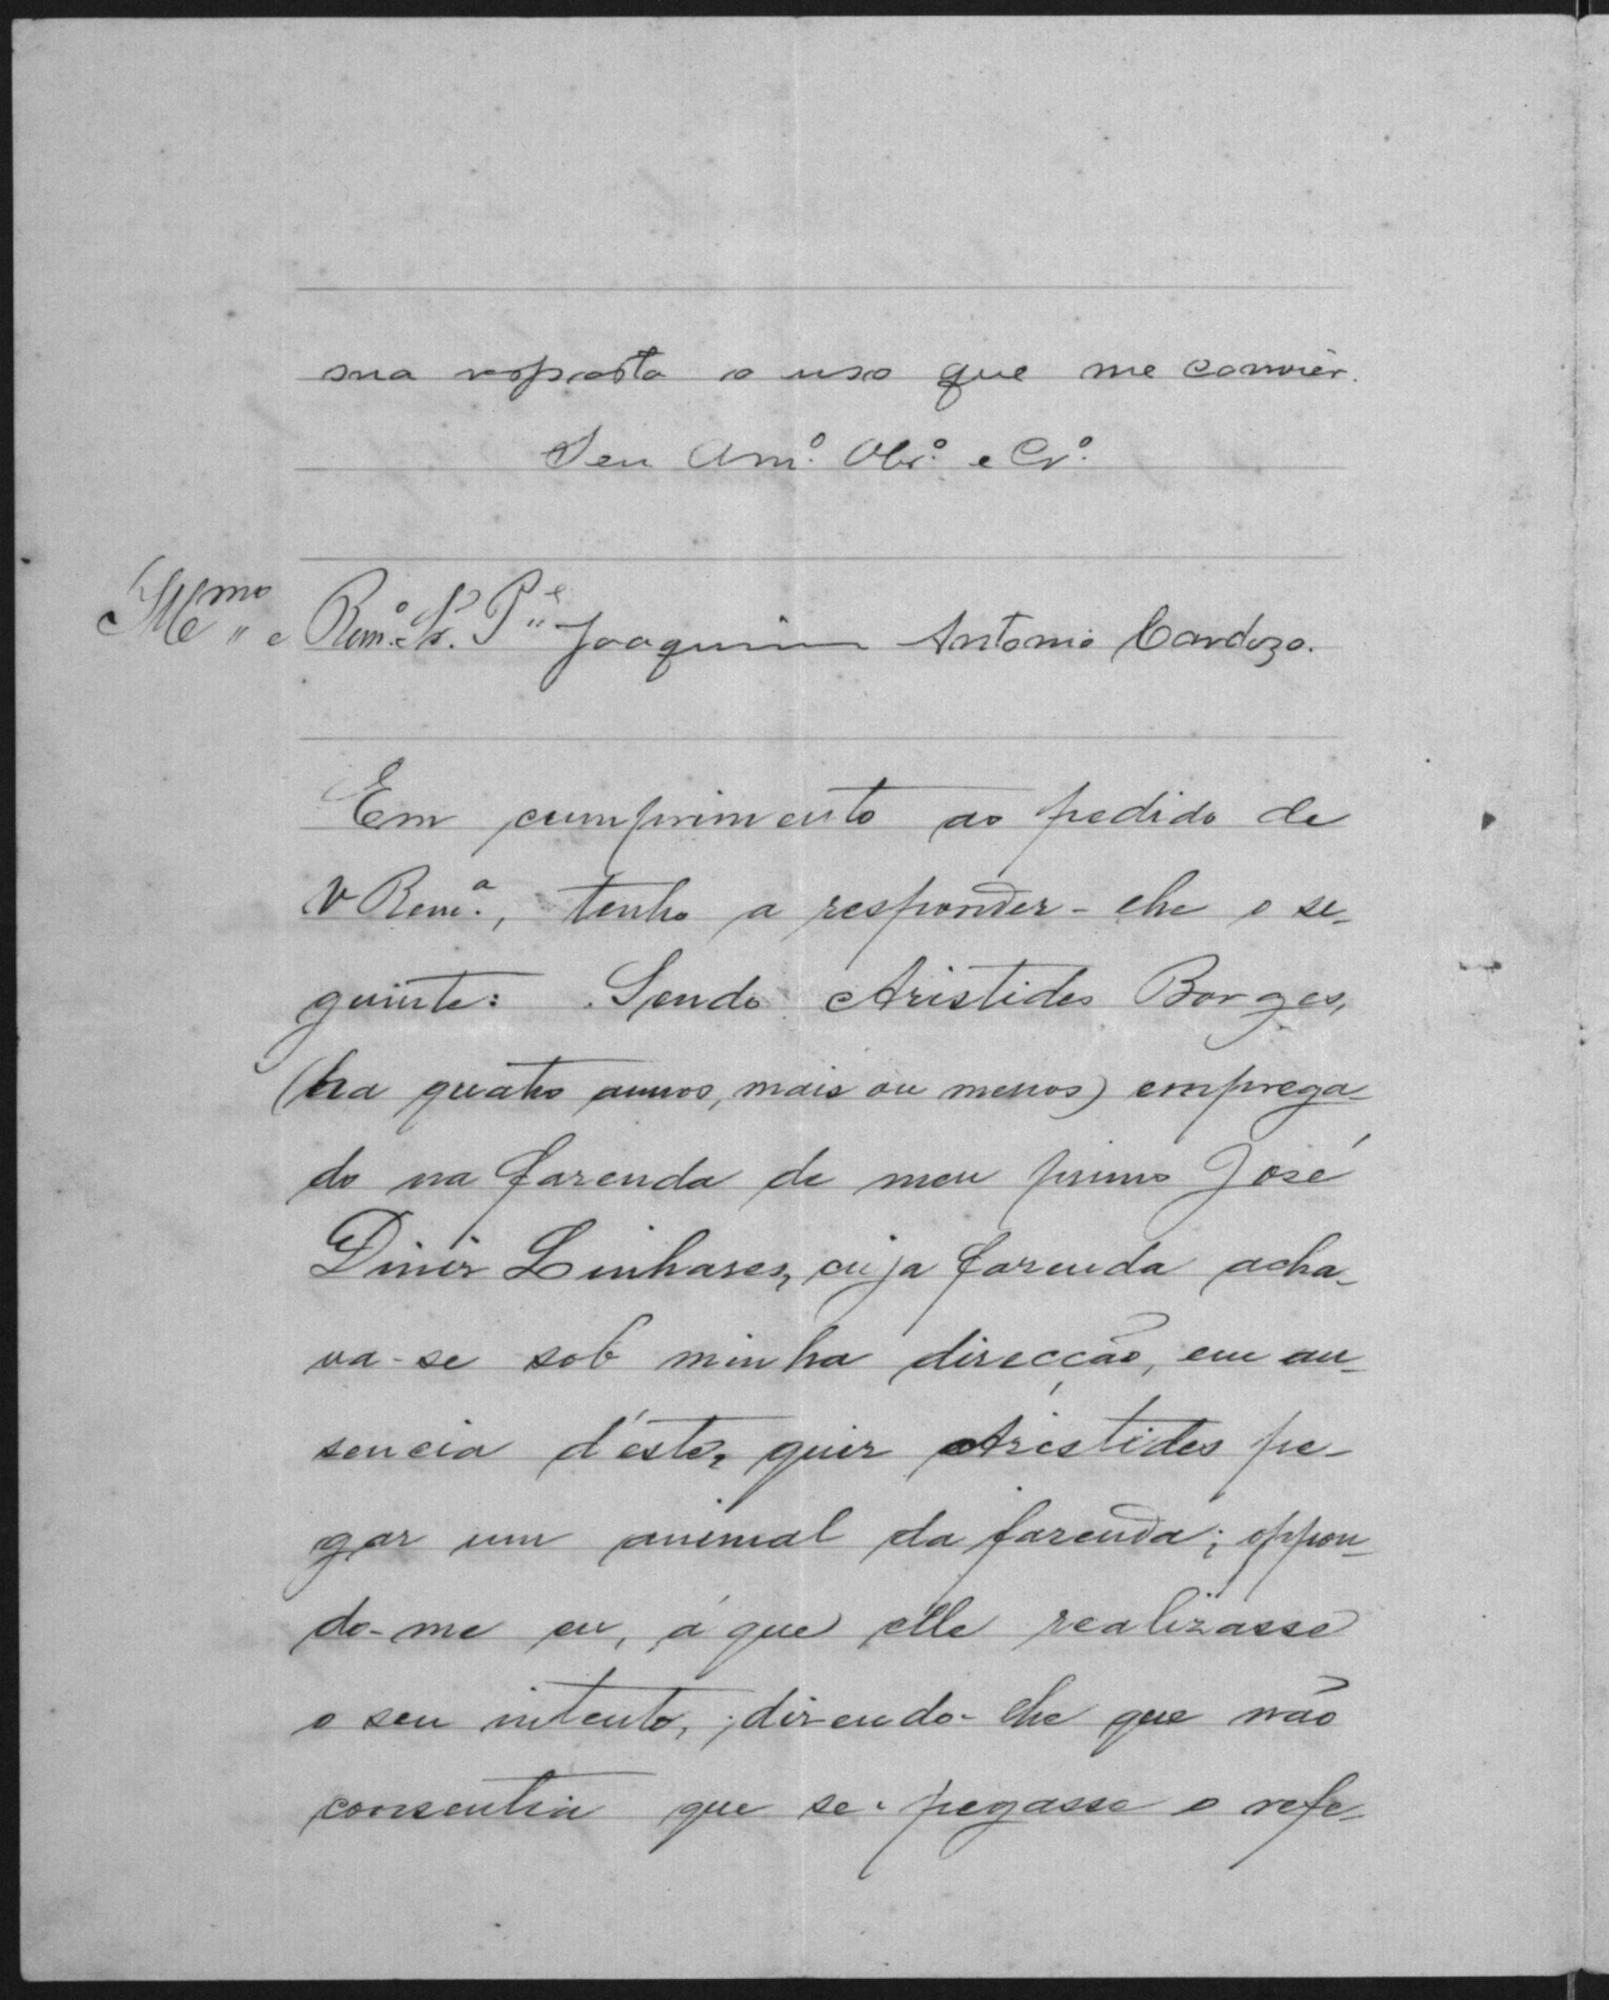 sua resposta o uso que me convier.
Seu Am.º Obr.º e Cr.º
Illmo e Revm.º Sr. P.e Joaquim Antonio Cardozo.
Em cumprimento ao pedido de
V Revm.ª, tenho a responder-lhe o se-
guinte: Sendo Aristides Borges,
(ha quatro annos, mais ou menos) emprega-
do na fazenda de meu primo José
Diniz Linhares, cuja fazenda acha-
va-se sob minha direcção, em au-
sencia d'este, quiz Aristides pe-
gar um animal da fazenda; oppon-
do-me eu, á que elle realizasse
o seu intento, dizendo-lhe que não
consentia que se pegasse o refe-